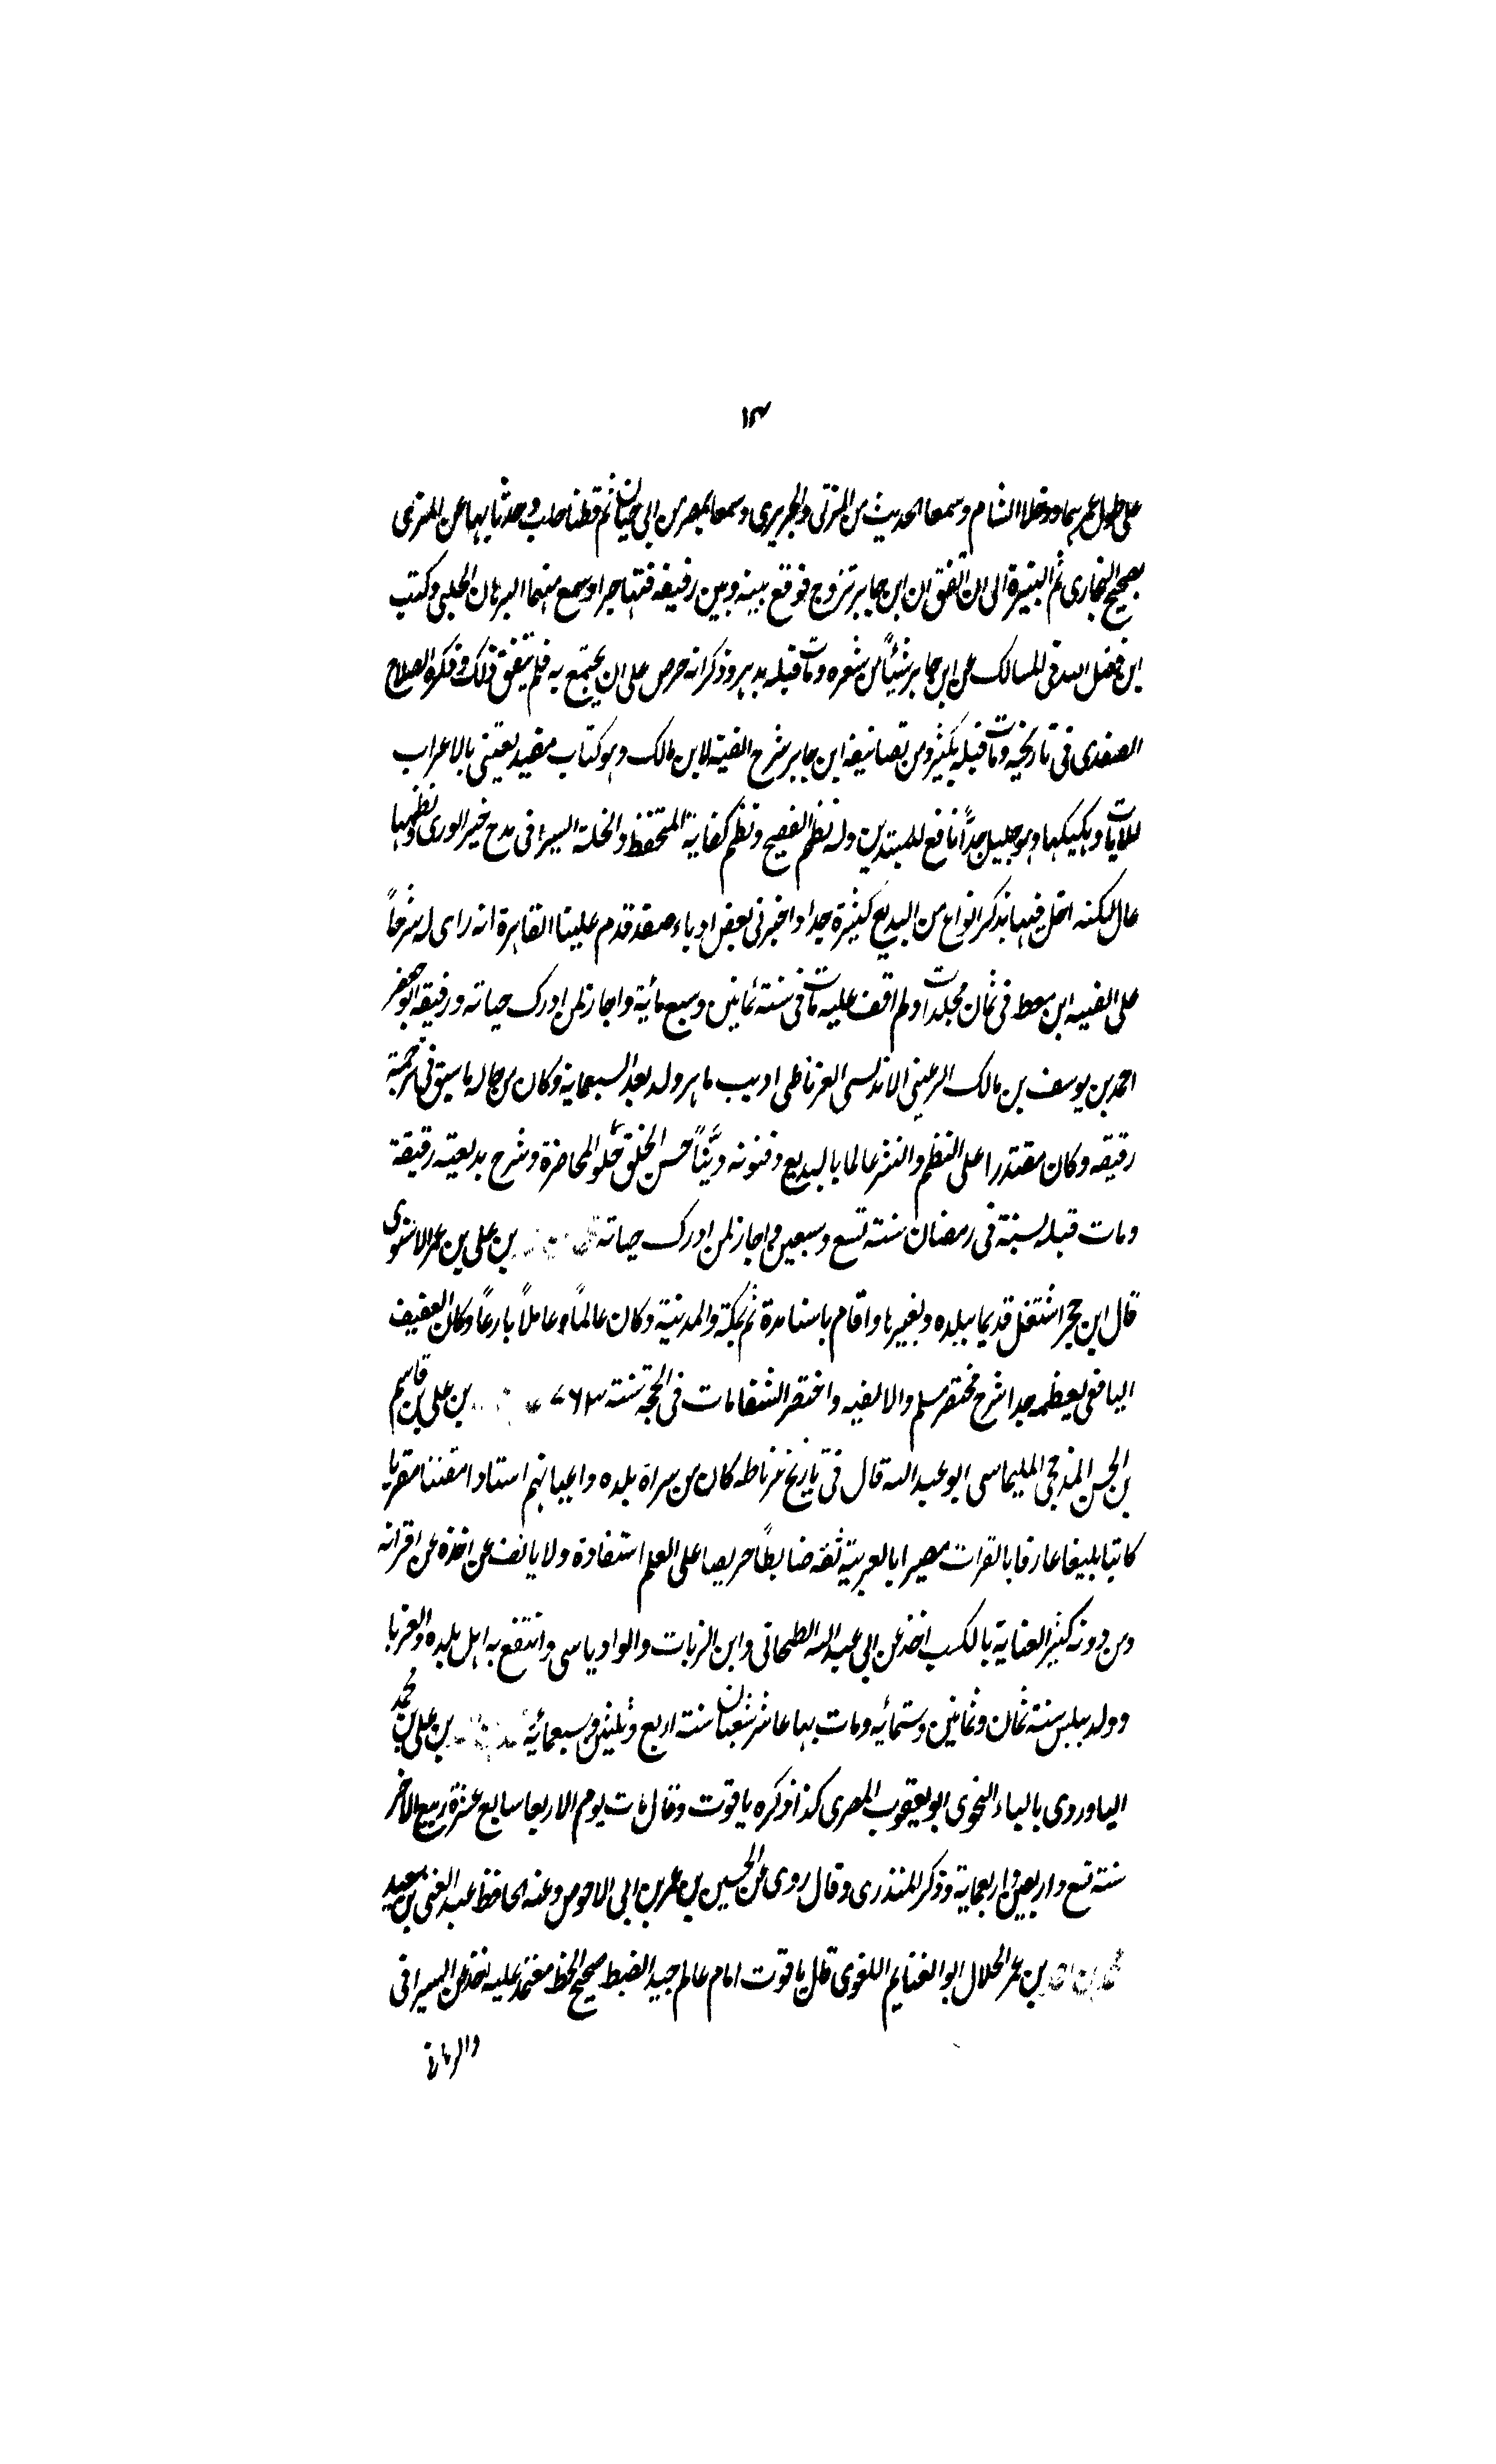 ١٣
على طول عمرهما ودخلا الشام وسمعا الحديث من المزى والجريرى وسمعا بمصر من ابى حيان ثم قطنا حلب وحدثا بها عن المزى
بصحيح البخارى ثم البيرة الى ان اتفق ان ابن جابر تزوج فوقع بينه وبين رفيقه فتهاجرا وسمع منهما البرهان الحلبى وكتب
ابن فضل الله فى المسالك عن ابن جابر شيئاً من شعره ومات قبله بدهر وذكر انه حرص على ان يجتمع به فلم يتفق ذلك وذكره الصلاح
الصفدى فى تاريخيه ومات قبله بكثير ومن تصانيفه ابن جابر شرح الفية لابن مالك وهو كتاب مفيد يعتنى بالاعراب
للابيات وبكيكها وهو جليل جداً نافع للمبتدين وله نظم الفصيح ونظم كفاية المتحفظ والحلة السيرا فى مدح خير الورى ونظمها
عال لكنه اخل فيها بذكر انواع من البديع كثيرة جدا واخبرنى بعض ادباء صفد قدم علينا القاهرة انه راى له شرحاً
على الفيه ابن معط فى ثمان مجلدات ولم اقف عليه مات فى سنة ثمانين وسبع مائية واجاز لمن ادرك حياته ورفيقه ابو جعفر
احمد بن يوسف بن مالك الرعينى الاندلسى الغرناطى اديب ماهر ولد بعد السبعماية وكان من حاله ما سبق فى ترجمة
رفيقه وكان مقتدرا على النظم والنثر عالما بالبديع وفنونه ديّناً حسن الخلق حلو المحاضرة وشرح بديعيته رفيقة
ومات قبله بسنة فى رمضان سنة تسع وسبعين واجاز لمن ادرك حياته بن على بن عمر الاسنوى
قال ابن حجر اشتغل قديما ببلده وبغيرها واقام باسنا مدة ثم بمكة والمدينة وكان عالماً وعاملاً بارعاً وكان العفيف
اليافعى يعظمه جدا شرح مختصر مسلم والالفيه واختصر الشفا مات فى الحجة سنة ٧٦٣ بن على بن قاسم
بن الحسن المذحجى المليماسى ابو عبد الله قال فى تاريخ غرناطه كان من سراة بلده واعيانهم استاذا مفننا مقريا
كاتبا بليغا عارفا بالقرات بصيرا بالعربية ثقه ضابطاً حريصا على العلم استفادة ولا يانف عن اخذه عن اقرانه
ومن دونه كثير العناية بالكسب اخذ عن ابى عبد الله الطحانى وابن الزيات والوادياسى وانتفع به اهل بلده والغربا
وولد ببلس سنة ثمان وثمانين وستمائيه ومات بها عاشر شعبان سنة اربع وثلثين وسبعمائية بن على بن محمد
الياوردى بالياء النحوى ابو يعقوب المصرى كذا ذكره ياقوت وقال مات يوم الاربعا سابع عشرة ربيع الاخر
سنة تسع واربعين واربعماية وذكر المنذرى وقال روى عن الحسين بن عمر بن ابى الاحوص وعنه الحافظ عبد الغنى بن سعيد
محمد بن احمد بن عمر الحلال ابو الغنايم اللغوى قال ياقوت امام عالم جيد الضبط صحيح الخط معتمد عليه اخذ عن السيرافى
والرمانى